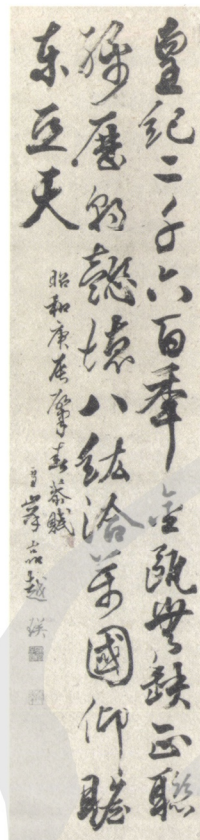 皇紀二千六百年金甌無缺正聯
綿歷朝懿德八紘洽萬國仰瞻
東亞天
昭和庚辰肇春恭賦
峯越